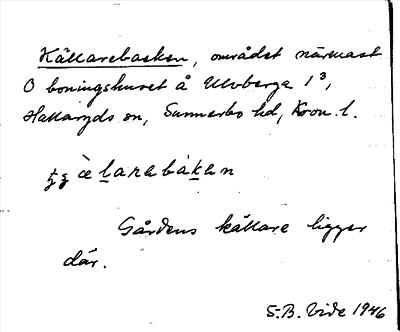 Källarebacken, området närmast
O boningshuset å Ulvberga 1³,
Hallaryds sn, Sunnerbo hd, Kron. l.
Gårdens källare ligger
där.
S.-B. Vide 1946